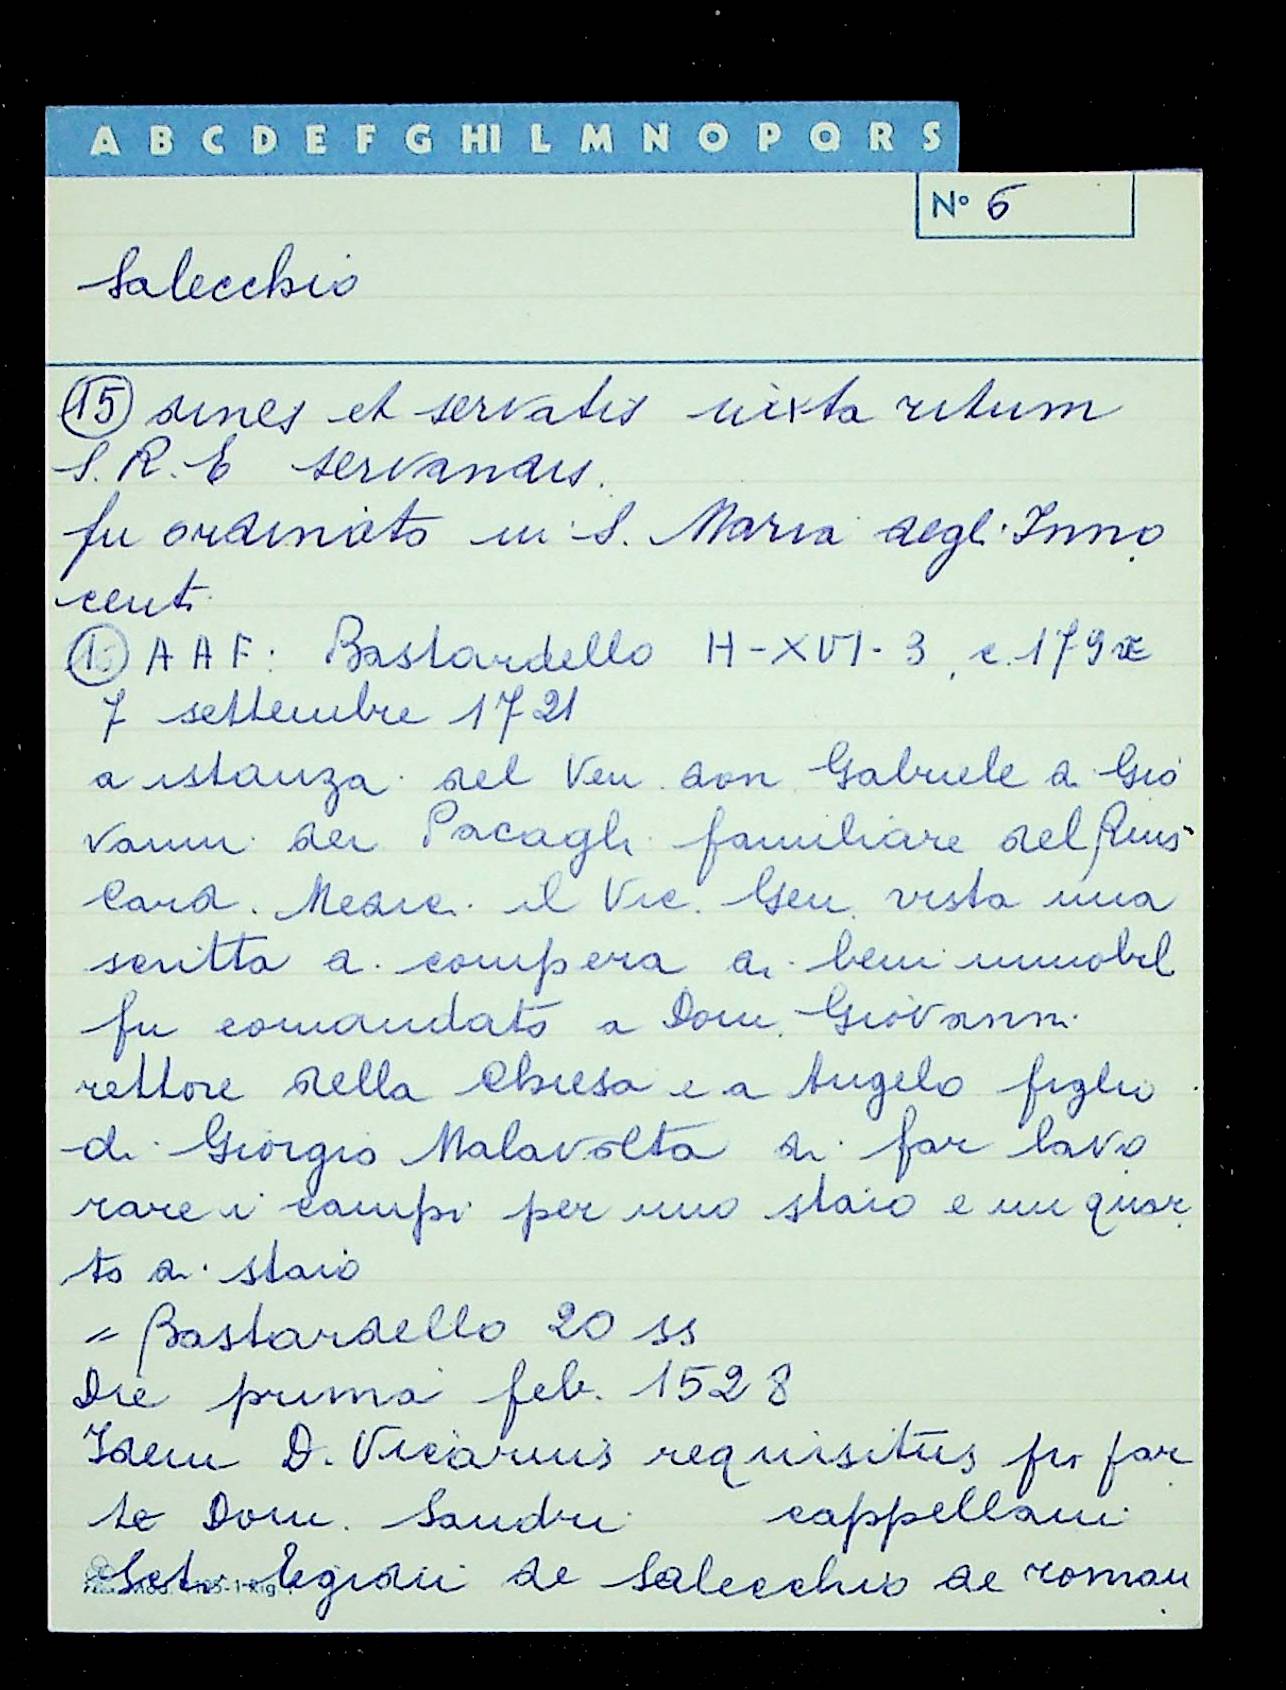 A B C D E F G HI L M N O P Q R S
N° 6
Salecchio
15 dines et servatis iuxta ritum
S. R. E servandis.
fu ordinato in S. Maria degli Inno
centi
1. A A F: Bastardello H-XVI-3, c. 179
7 settembre 1721
a istanza del Ven don Gabriele di Gio
vanni dei Pacagli familiare del Rmo
Card. Medici il Vic. Gen. vista una
scritta di compera di beni immobil
fu comandato a Dom. Giovanni
rettore della Chiesa e a Angelo figlio
di Giorgio Malavolta di far lavo
rare i campi per uno staio e un quar
to di staio
= Bastardello 20 ss
Die prima feb. 1528
Idem D. Vicarius requisitus pro par
te Dom. Sandri cappellani
Scti Egidii de Salecchio de roman